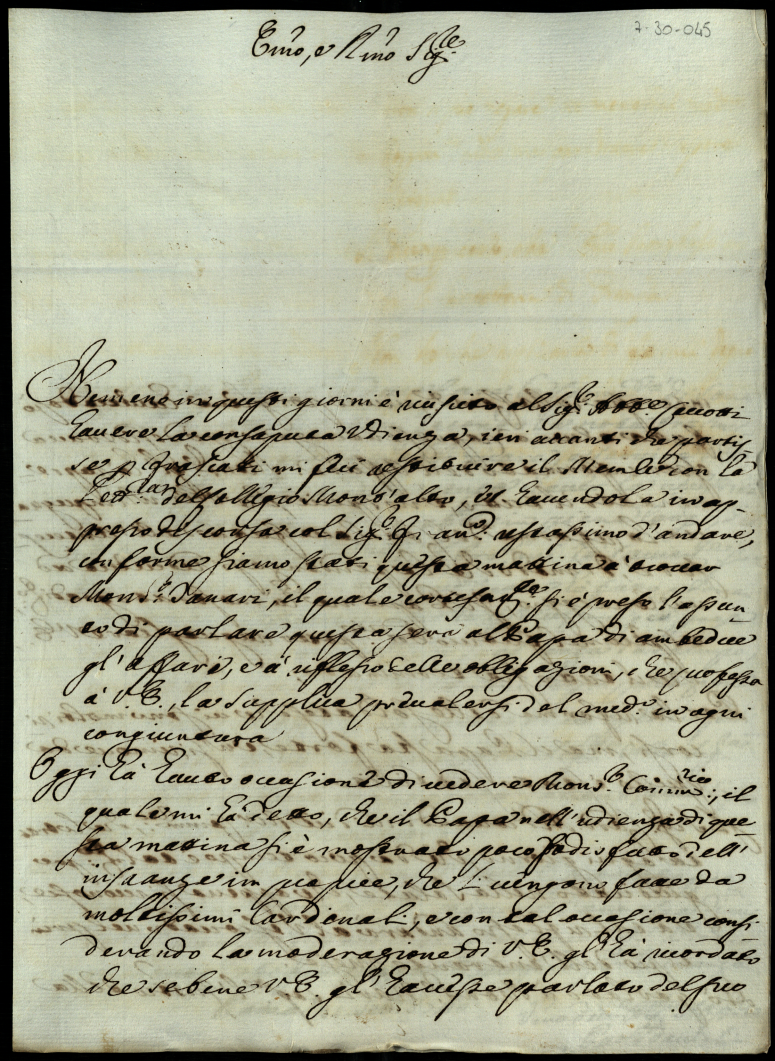 7-30-045
Emo, e Rmo Sigre
Nemeno in questi giorni è riuscito al Sigr. Abbe
havere la consaputa udienza, ieri avanti che partis
se p Frascati mi feci restituire il Memle con la
del Collegio Montalto, et havendola in ap-
presso discorsa col Sigr. restassimo d'andare,
conforme siamo stati questa mattina à trovar
Monsr. Sanari, il quale cortesemte. si è preso l'assun
to di parlare questa sera al Papa di ambedue
gl'affari, e à riflesso delle obligazioni, che professa
à V.E., la supplica prevalersi del medo. in ogni
congiuntura
Oggi hà hauto occasione di vedere Monsr. il
quale mi hà detto, che il Papa nell'udienza di que
sta mattina si è mostrato poco sodisfatto dell'
instanze che li vengono fatte da
moltissimi Cardinali, e con tal occasione consi
derando la moderazione di V.E. gl'hà ricordato
che sebene V.E. gl'havesse parlato del suo